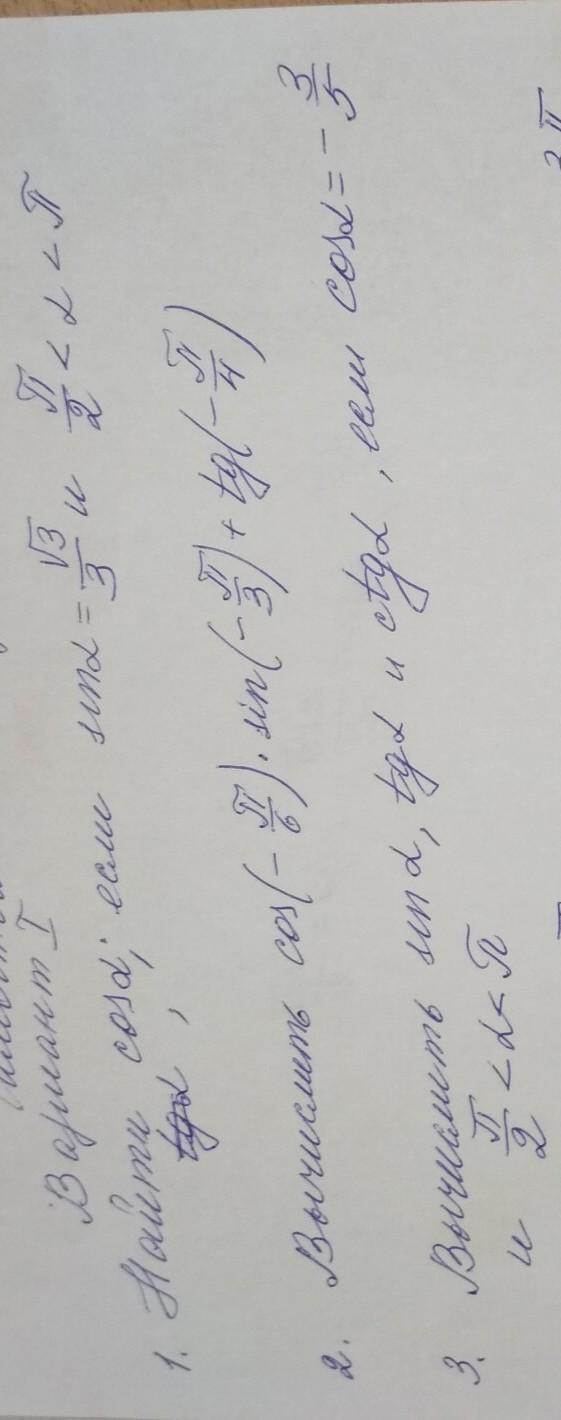 Вариант I
1. Найти cosα; если sinα = √3/3 и π/2 < α < π
tgα ,
2. Вычислить cos(-π/6) · sin(-π/3) + tg(-π/4)
3. Вычислить sin α, tgα и ctgα, если cosα = -3/5
и π/2 < α < π